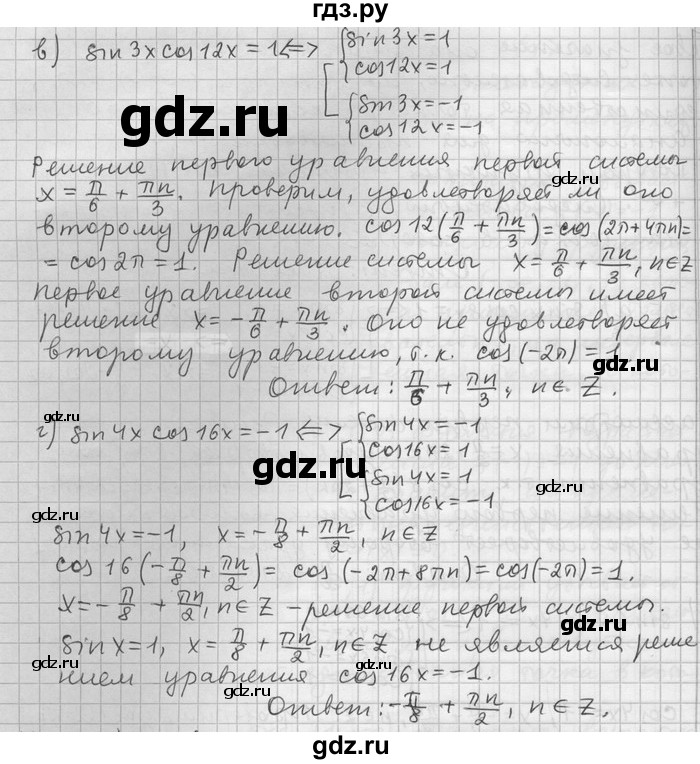 гдз.ру
в) sin 3x cos 12x = 1 <=> [ { sin 3x = 1
cos 12x = 1
{ sin 3x = -1
cos 12x = -1
gdz.ru
Решение первого уравнения первой системы
x = π/6 + πn/3. Проверим, удовлетворяет ли оно
второму уравнению. cos 12(π/6 + πn/3) = cos (2π + 4πn) =
= cos 2π = 1. Решение системы x = π/6 + πn/3, n∈Z
первое уравнение второй системы имеет
решение x = -π/6 + πn/3. Оно не удовлетворяет
второму уравнению, т.к. cos (-2π) = 1
Ответ: π/6 + πn/3, n∈Z.
г) sin 4x cos 16x = -1 <=> [ { sin 4x = -1
cos 16x = 1
{ sin 4x = 1
cos 16x = -1
sin 4x = -1, x = -π/8 + πn/2, n∈Z
cos 16 (-π/8 + πn/2) = cos (-2π + 8πn) = cos (-2π) = 1.
x = -π/8 + πn/2, n∈Z - решение первой системы.
sin x = 1, x = π/8 + πn/2, n∈Z не является реше
нием уравнения cos 16x = -1.
Ответ: -π/8 + πn/2, n∈Z.
gdz.ru